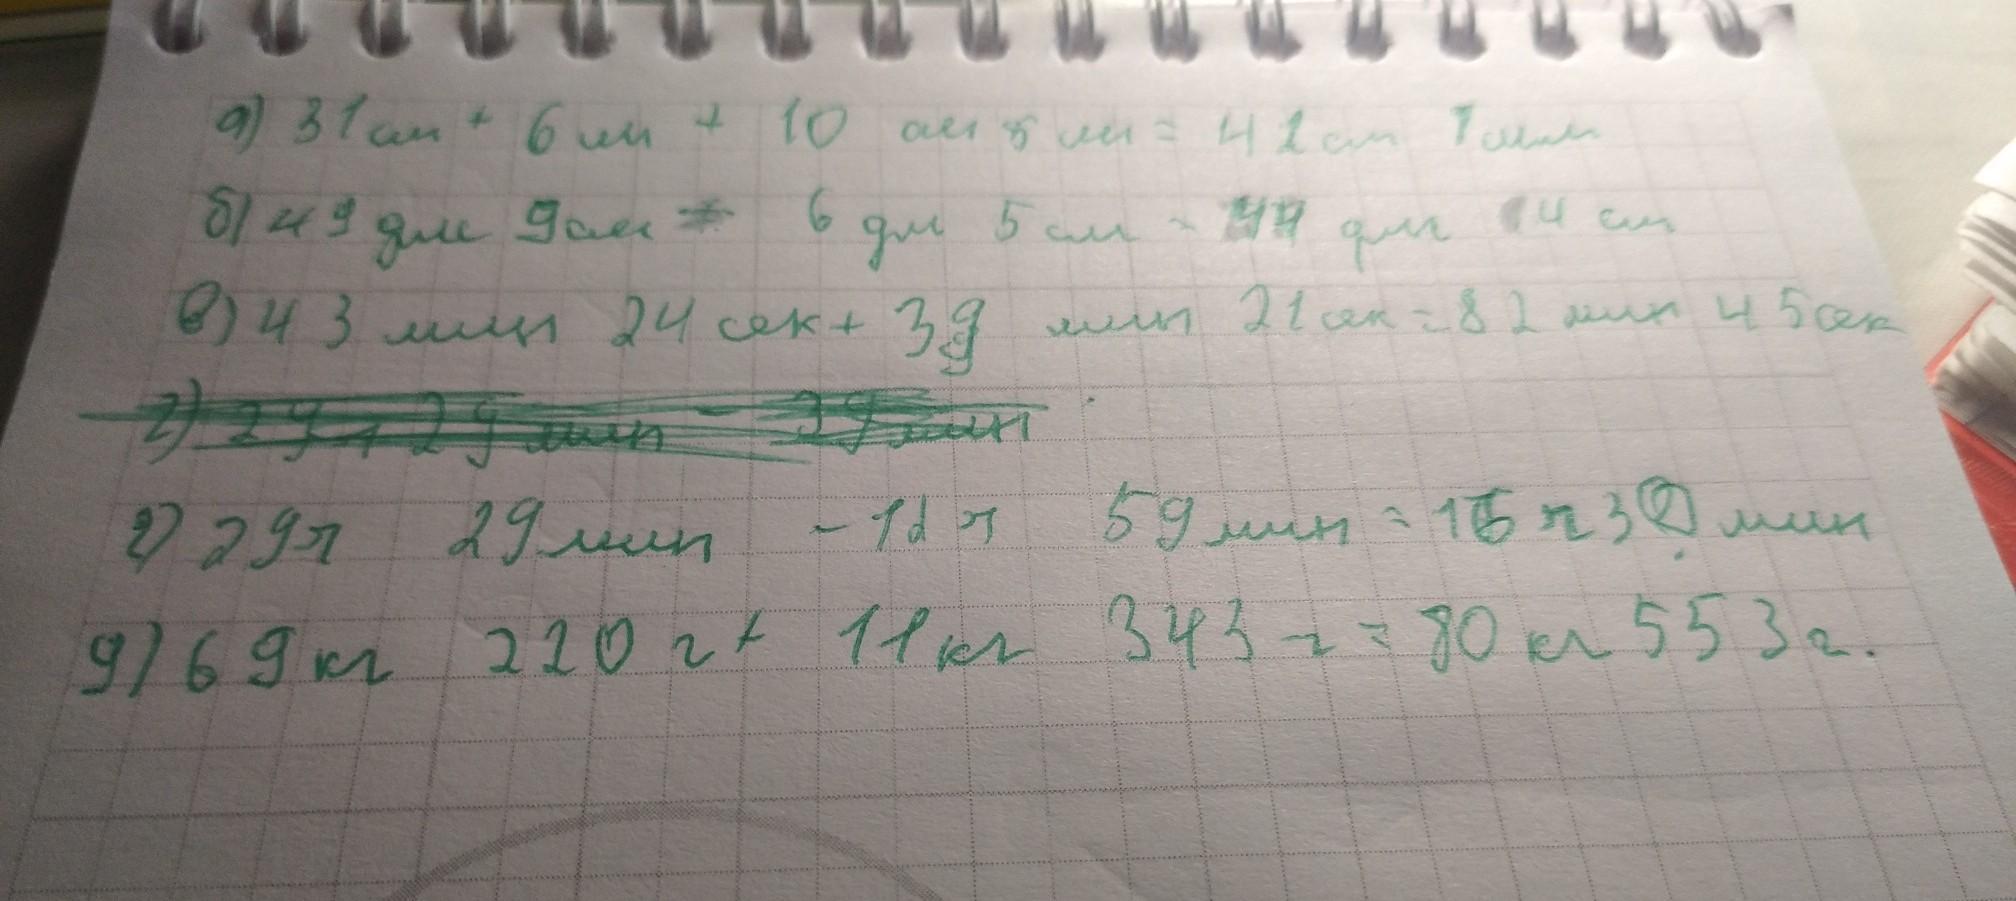 а) 31 см + 6 мм + 10 см 5 мм = 41 см 1 мм
б) 49 дм 9 см 6 дм 5 см = 44 дм 4 см
в) 43 мин 24 сек + 39 мин 21 сек = 82 мин 45 сек
г) 29 ч 29 мин - 12 ч 59 мин = 16 ч 30 мин
д) 69 кг 210 г + 11 кг 343 г = 80 кг 553 г.